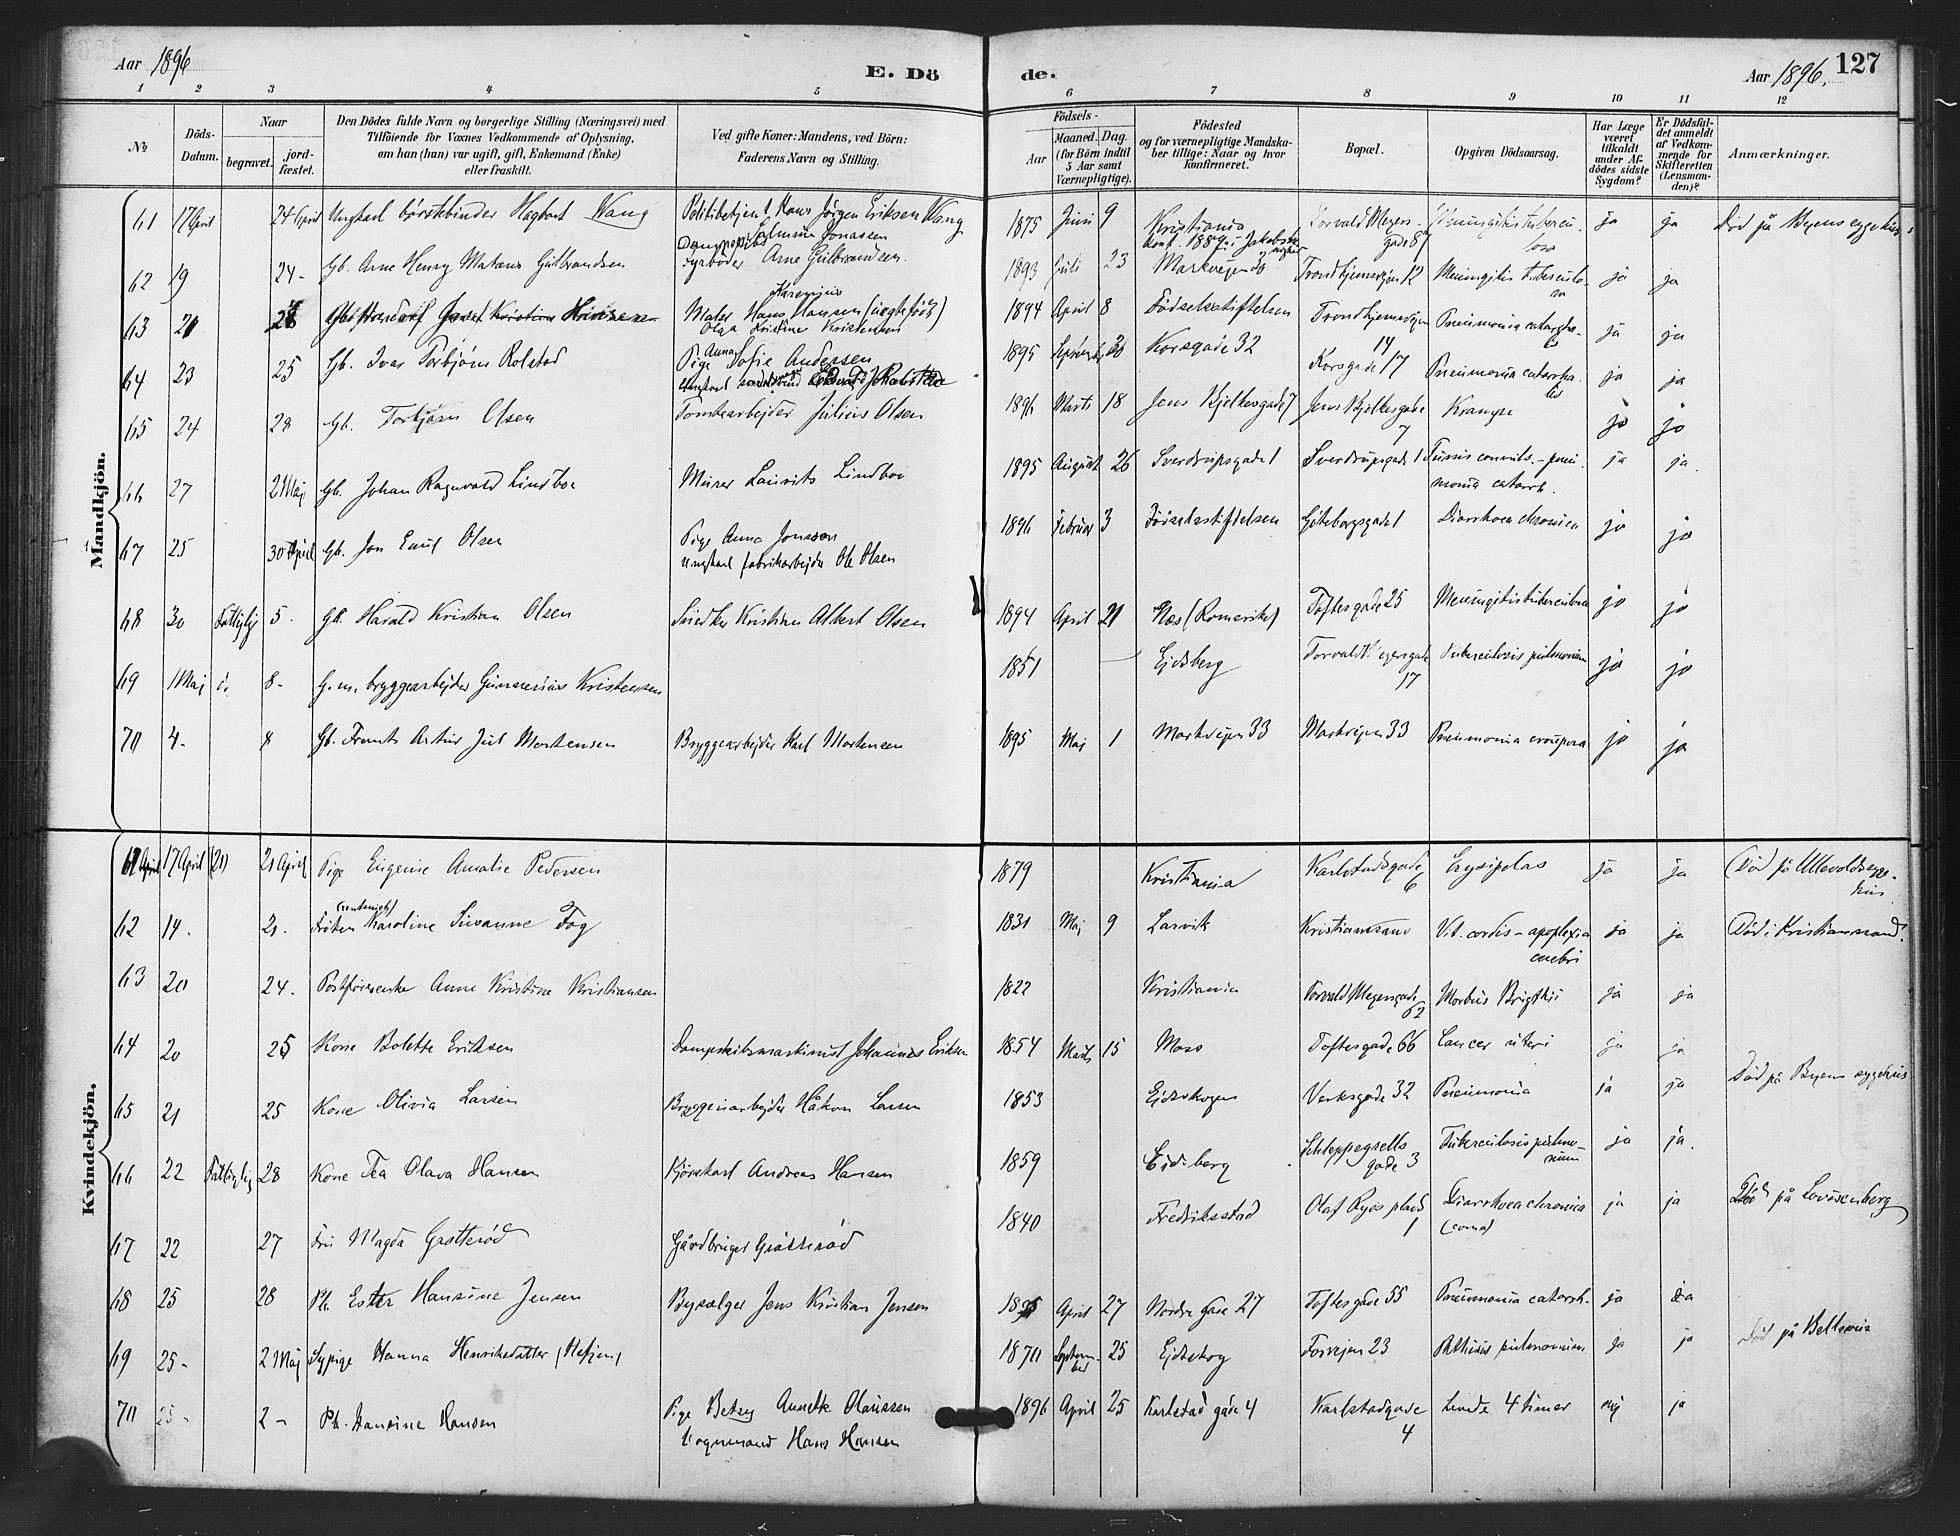 Aar 1896
E. Dö
de.
Aar 1896.
127
1 2 3 4 5 6 7 8 9 10 11 12
№
Döds-Datum.
Naar
begravet.
jord-fæstet.
Den Dödes fulde Navn og borgerlige Stilling (Næringsvei) med
Tilföiende for Voxnes Vedkommende af Oplysning,
om han (hun) var ugift, gift, Enkemand (Enke)
eller fraskilt.
Ved gifte Koner: Mandens, ved Börn:
Faderens Navn og Stilling.
Födsels-
Aar
Maaned. Dag.
(for Börn indtil
5 Aar samt
Værnepligtige).
Födested
og for værnepligtige Mandska-
ber tillige: Naar og hvor
konfirmeret.
Bopæl.
Opgiven Dödsaarsag.
Har Læge
været
tilkaldt
under Af-
dödes sidste
Sygdom?
Er Dödsfal-
det anmeldt
af Vedkom-
mende for
Skifteretten
(Lensman-
den)?
Anmærkninger.
Mandkjön.
61 17 April 24 April Ungkarl børstebinder Hagbart Wang Politibetjent Hans Jörgen Eriksen Wang 1875 Juni 9 Kristiania Torvald Meyers- Meningitis tubercu- ja ja Død på Byens sygehus
konf. 1889 i Jakobs gade 8 losa
62 19 24- Gb. Arne Henry Gulbrandsen fyrböder Arne Gulbrandsen. 1893 Juli 23 Markvejen Trondhjemsvejen 12 Meningitis tuberculo- ja ja
sa
63 21 28 Maler Hans Hansen 1894 April 8 Fødselsstiftelsen Trondhjemsvejen Pneumonia catarrha- ja ja
Olga Kristine Kristensen 14 lis
64 23 25 Gb. Ivar Torbjörn Rolstad Pige Anna Sofie Andersen 1895 30 Korsgade 32 Korsgade 17 Pneumonia catarrha- ja ja
Ungkarl lis
65 24 28 Gb. Torbjörn Olsen Tomtearbejder Julius Olsen 1896 Marts 18 Jens Bjelkesgade 7 Jens Bjelkesgade Krampe ja ja
7
66 27 2 Maj Gb. Johan Ragnvald Lindboe Murer Laurits Lindboe 1895 August 26 Sverdrupsgade 1 Sverdrupsgade 1 Tussis convuls.- pneu- ja ja.
monia catarrh.
67 25 30 April Gb. Jon Emil Olsen Pige Anna Jonsson 1896 Februar 3 Fødselsstiftelsen Göteborgsgade 1 Diarrhoea chronica ja ja
Ungkarl fabrikarbejder Ole Olsen
68 30 Fattiglig 5. Gb. Harald Kristian Olsen Snedker Kristian Albert Olsen 1894 April 21 Næs (Romerike) Toftesgade 25 Meningitis tuberculosa ja ja
69 1 Maj d. 8- G.m. bryggearbejder Gunnerius Kristensen 1851 — Ejdsberg Torvald Meyersgade Tuberculosis pulmonum ja ja
17
70 4- 8 Gb. Frants Artur Jul Mortensen Bryggearbejder Karl Mortensen 1895 Maj 1 Markvejen 33 Markvejen 33 Pneumonia crouposa ja ja
Kvindekjön.
61 17 April (21) 21 April Pige Eugenie Amalie Pedersen 1879 Kristiania Karlstadsgade Erysipelas ja ja Død på Ullevoldsyge-
6 hus.
62 14. 21. Frøken Karoline Susanne Fog 1831 Maj 9 Larvik Kristianssand Vit. cordis - apoplexia ja ja Død i Kristianssand.
cerebri
63 20 24. Anne Kristine Kristiansen 1822 Kristiania Torvald Meyersgade Morbus Brigthii ja ja
62
64 20 25 Kone Bolette Eriksen Dampskibsmaskinist Johannes Eriksen 1854 Marts 15 Moss Toftesgade 66 Cancer uteri ja ja
65 21 25 Kone Olivia Larsen Bryggeriarbejder Håkon Larsen 1853 Ejdskogen Verksgade 32 Pneumonia ja ja Død på Byens sygehus
66 22 Fattiglig 28 Kone Tea Olava Hansen Kjørekarl Andreas Hansen 1859 Eidsberg Schleppegrells Tuberculosis pulmo- ja ja.
gade 3 num
67 22 27 Fru Magda Grøtterød Gårdbruger Grøtterød 1840 Fredriksstad Olaf Ryes plads Diarrhoea chronica ja ja Død på Lovisenberg
1 (coma)
68 25 28 Pb. Ester Hansine Jensen Bysælger Jens Kristian Jensen 1895 April 27 Nordre gade 27 Toftesgade 55 Pneumonia catarrh. ja ja
69 25- 2 Maj Sypige Hanna Henriksdatter 1870 Septem- 25 Ejdskog Torvejen 23 Phthisis pulmonum ja ja Død på Bellevue
ber
70 25- 2- Pb. Hansine Hansen Pige Betzy Annette Olaussen 1896 April 25 Karlstad gade 4 Karlstadgade Levede 4 timer nej ja
Vognmand Hans Hansen 4